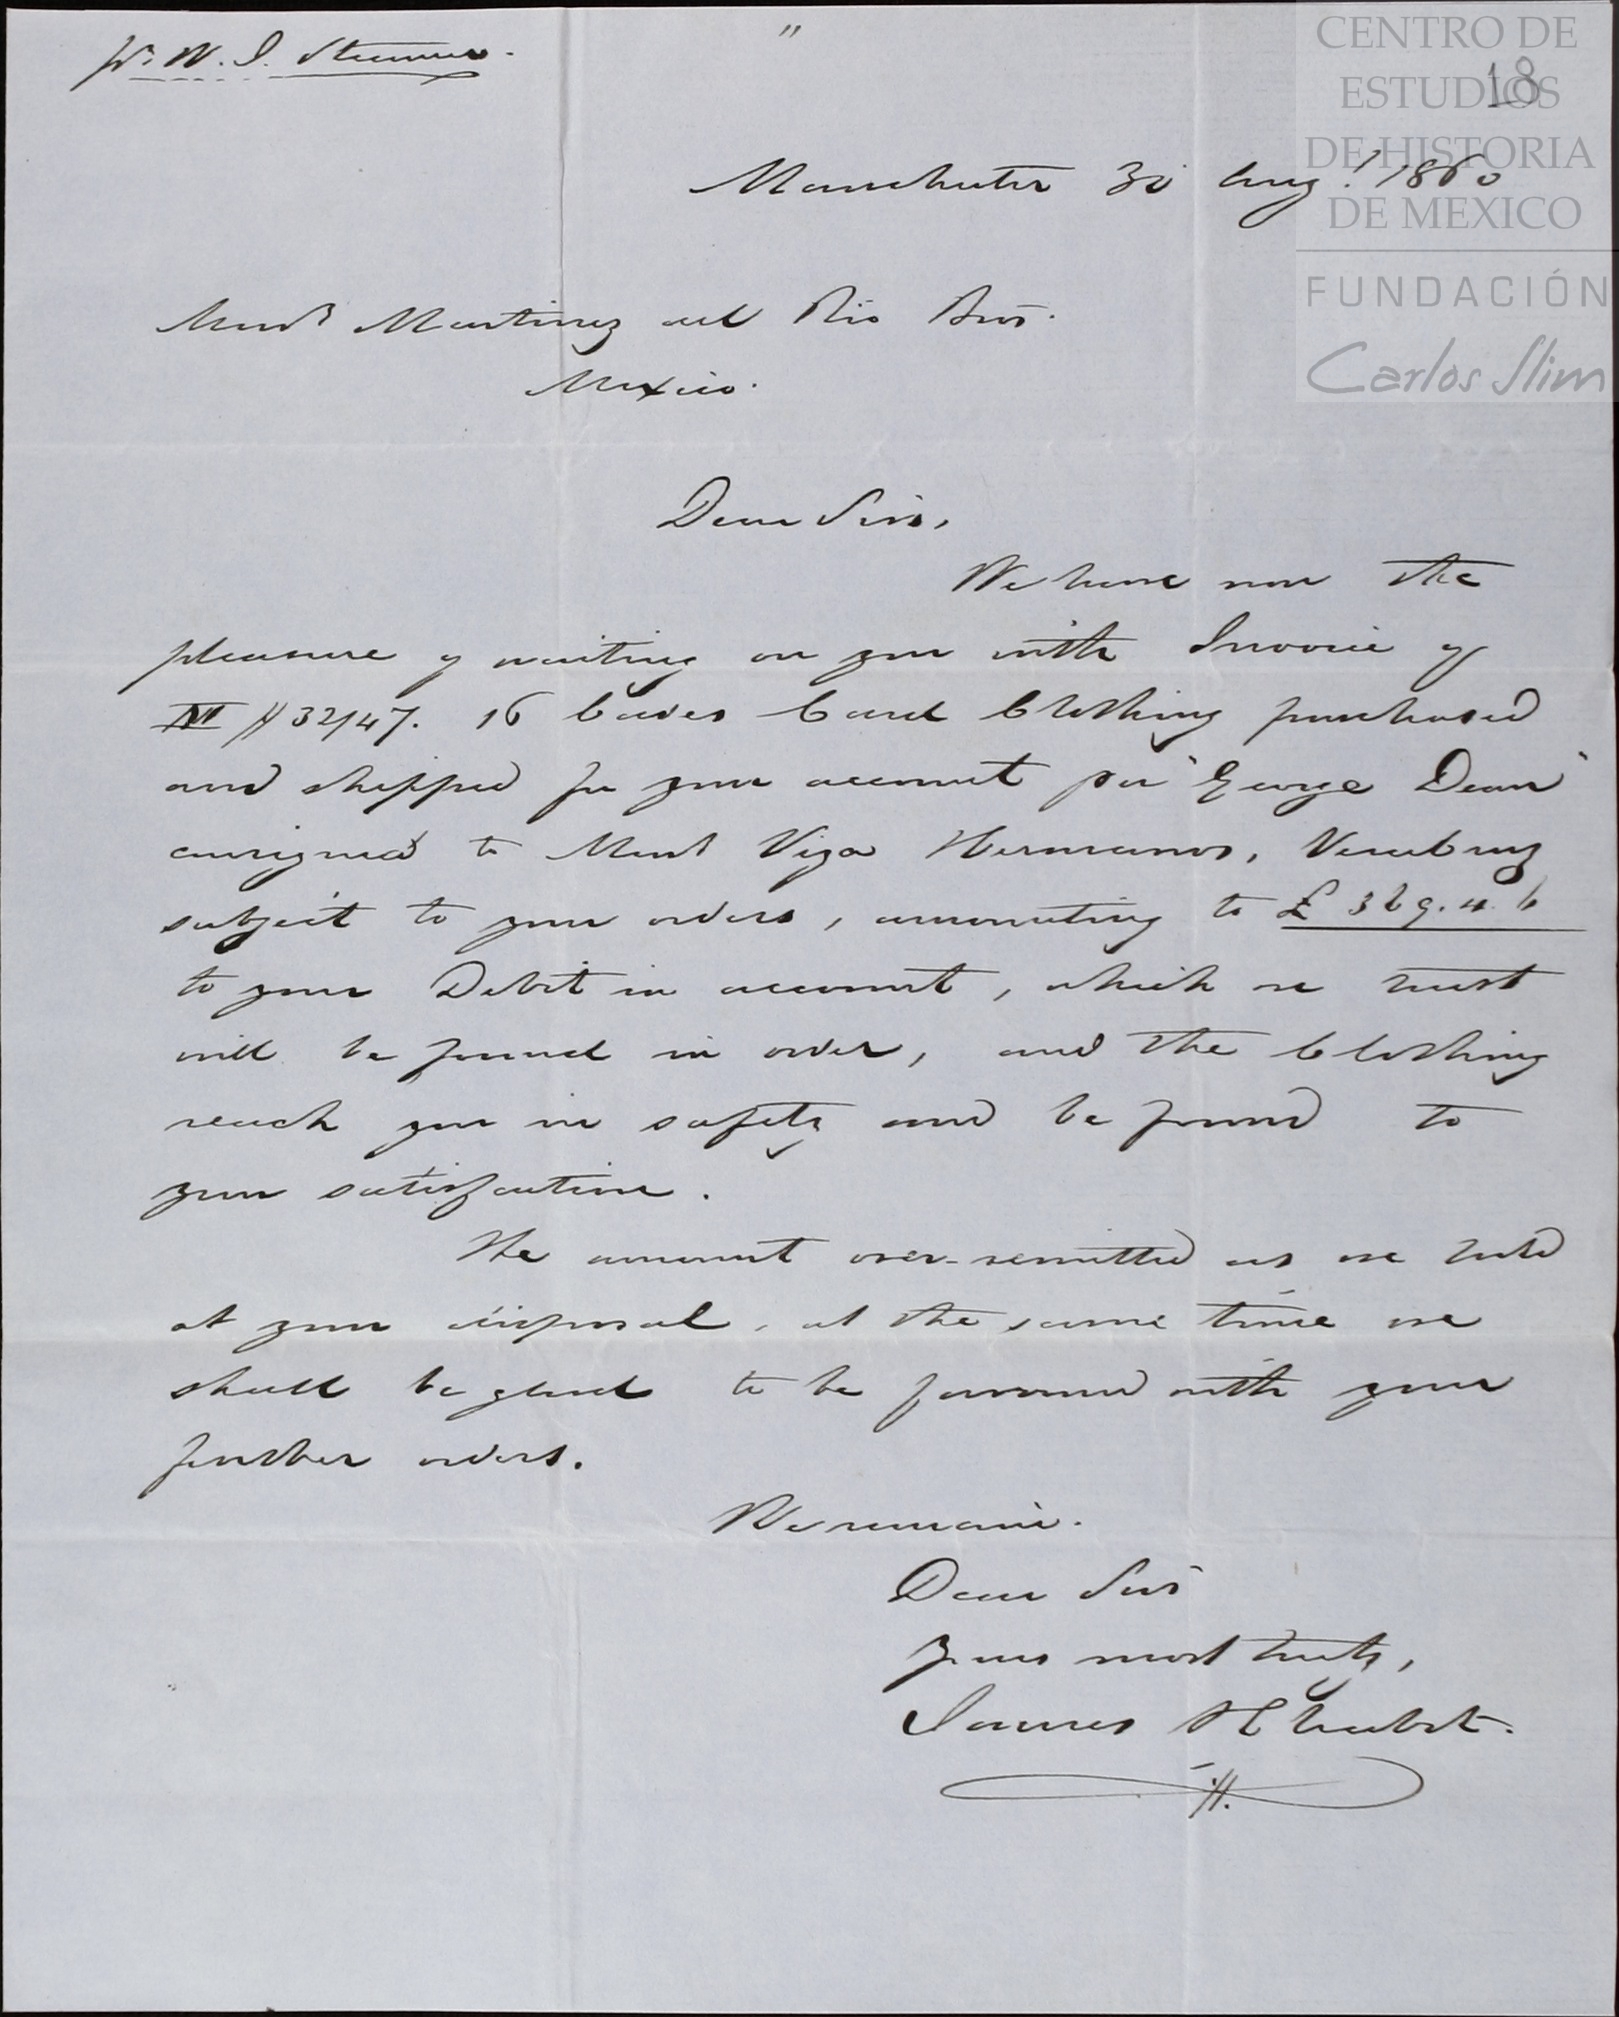 pr. W. I. Steamer.
"
18
CENTRO DE
ESTUDIOS
DE HISTORIA
DE MEXICO
FUNDACIÓN
Carlos Slim
Manchester 30 Augt. 1860
Messrs Martinez del Rio Bros.
Mexico.
Dear Sirs,
We have now the
pleasure of waiting on you with Invoice of
# 32/47. 16 Cases Card Clothing purchased
and shipped for your account per "George Dean"
consigned to Messrs Viya Hermanos, Veracruz
subject to your orders, amounting to £ 369.4.6
to your Debit in account, which we trust
will be found in order, and the Clothing
reach you in safety and be found to
your satisfaction.
The amount over-remitted as we hold
at your disposal, at the same time we
shall be glad to be favored with your
further orders.
We remain.
Dear Sirs
Yours most truly,
James